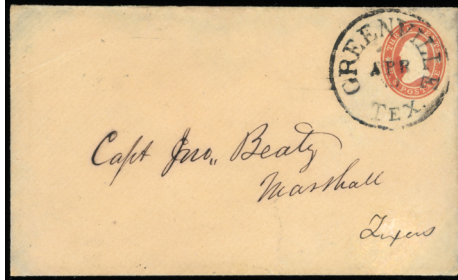 GREENVILLE
APR
TEX.
Capt Jno,, Beaty
Marshall
Texas